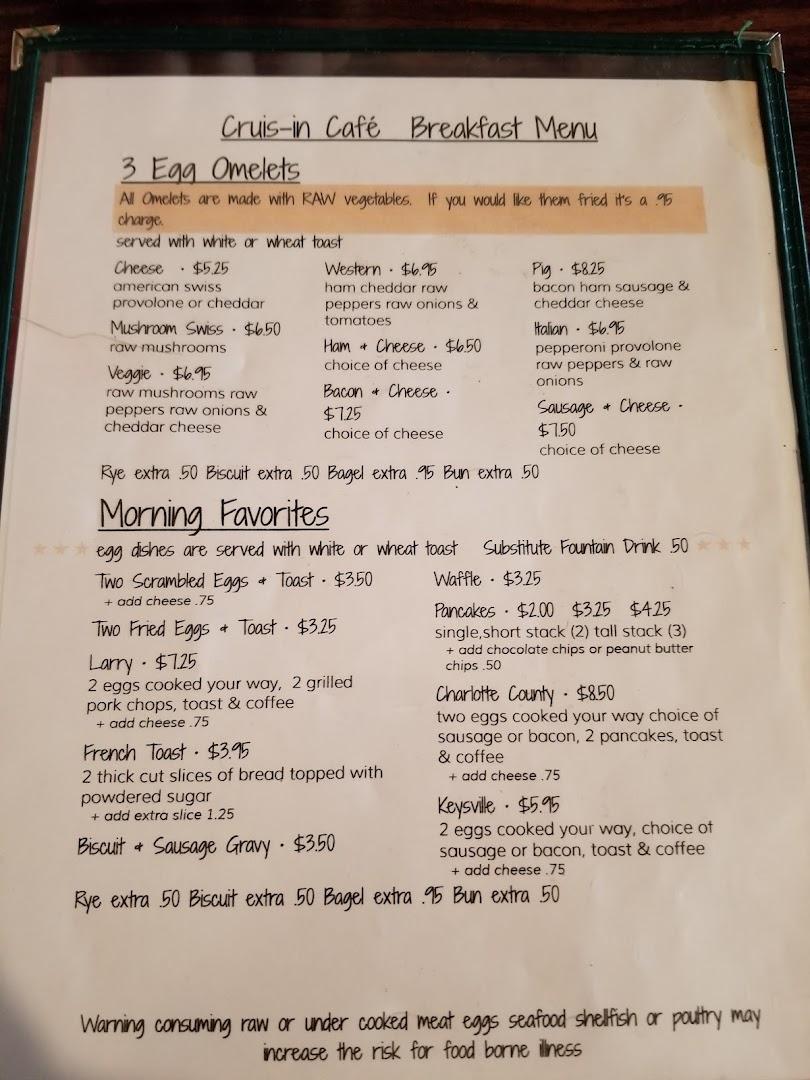 Cruis-in Café Breakfast Menu
3 Egg Omelets
All Omelets are made with RAW vegetables. If you would like them fried it's a .95
charge.
served with white or wheat toast
Cheese · $5.25
american swiss
provolone or cheddar
Mushroom Swiss · $6.50
raw mushrooms
Veggie · $6.95
raw mushrooms raw
peppers raw onions &
cheddar cheese
Western · $6.95
ham cheddar raw
peppers raw onions &
tomatoes
Ham + Cheese · $6.50
choice of cheese
Bacon + Cheese ·
$7.25
choice of cheese
Pig · $8.25
bacon ham sausage &
cheddar cheese
Italian · $6.95
pepperoni provolone
raw peppers & raw
onions
Sausage + Cheese ·
$7.50
choice of cheese
Rye extra .50 Biscuit extra .50 Bagel extra .95 Bun extra .50
Morning Favorites
egg dishes are served with white or wheat toast Substitute Fountain Drink .50
Two Scrambled Eggs + Toast · $3.50
+ add cheese .75
Two Fried Eggs + Toast · $3.25
Larry · $7.25
2 eggs cooked your way, 2 grilled
pork chops, toast & coffee
+ add cheese .75
French Toast · $3.95
2 thick cut slices of bread topped with
powdered sugar
+ add extra slice 1.25
Biscuit + Sausage Gravy · $3.50
Waffle · $3.25
Pancakes · $2.00 $3.25 $4.25
single,short stack (2) tall stack (3)
+ add chocolate chips or peanut butter
chips .50
Charlotte County · $8.50
two eggs cooked your way choice of
sausage or bacon, 2 pancakes, toast
& coffee
+ add cheese .75
Keysville · $5.95
2 eggs cooked your way, choice of
sausage or bacon, toast & coffee
+ add cheese .75
Rye extra .50 Biscuit extra .50 Bagel extra .95 Bun extra .50
Warning consuming raw or under cooked meat eggs seafood shellfish or poultry may
increase the risk for food borne illness